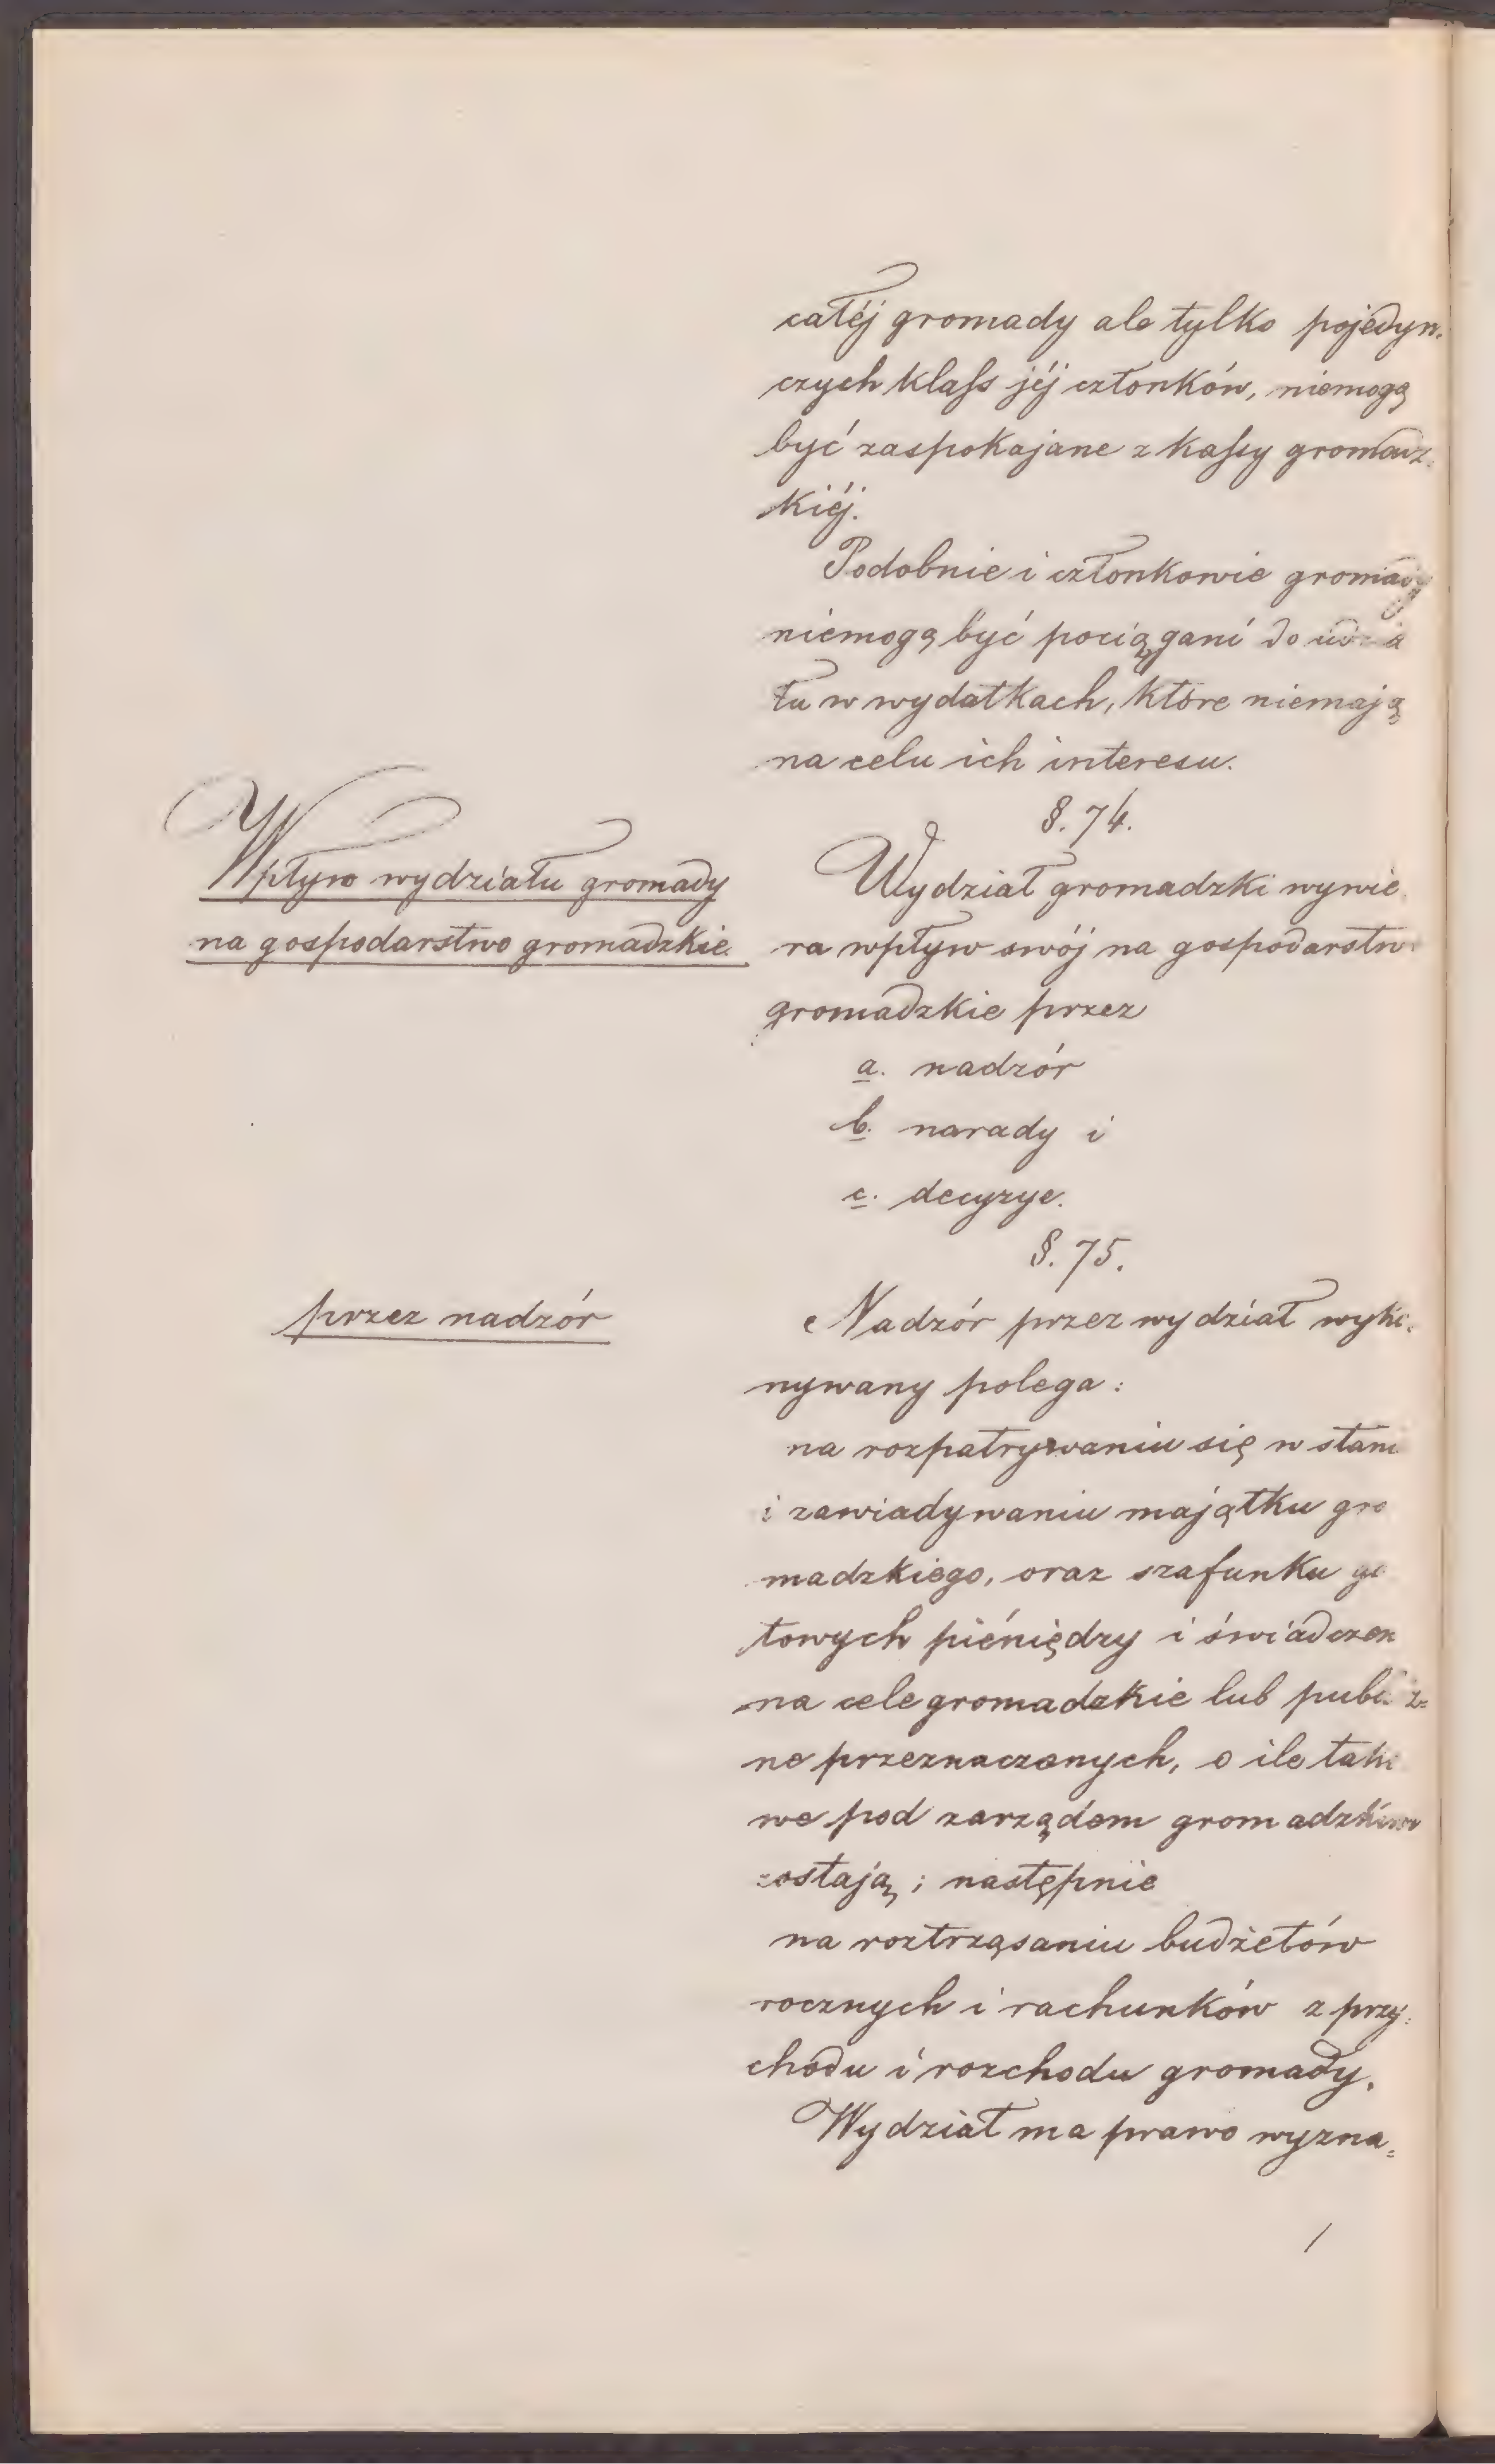 całéj gromady ale tylko pojedyn-
czych klass jéj członków, niemogą
być zaspokajane z kassy gromadz-
kiéj.
Podobnie i członkowie gromady
niemogą być pociągani do udzia
łu w wydatkach, które niemają
na celu ich interesu.
§. 74.
Wpływ wydziału gromady
na gospodarstwo gromadzkie.
Wydział gromadzki wywie
ra wpływ swój na gospodarstwo
gromadzkie przez
a. nadzór
b. narady i
c. decyzye.
§. 75.
przez nadzór
Nadzór przez wydział wyko-
nywany polega:
na rozpatrywaniu się w stanie
i zawiadywaniu majątku gro
madzkiego, oraz szafunku go
towych piéniędzy i świadczen
na cele gromadzkie lub publicz-
ne przeznaczonych, o ile tako
we pod zarządem gromadzkim
zostają; następnie
na roztrząsaniu budżetów
rocznych i rachunków z przy-
chodu i rozchodu gromady.
Wydział ma prawo wyzna=